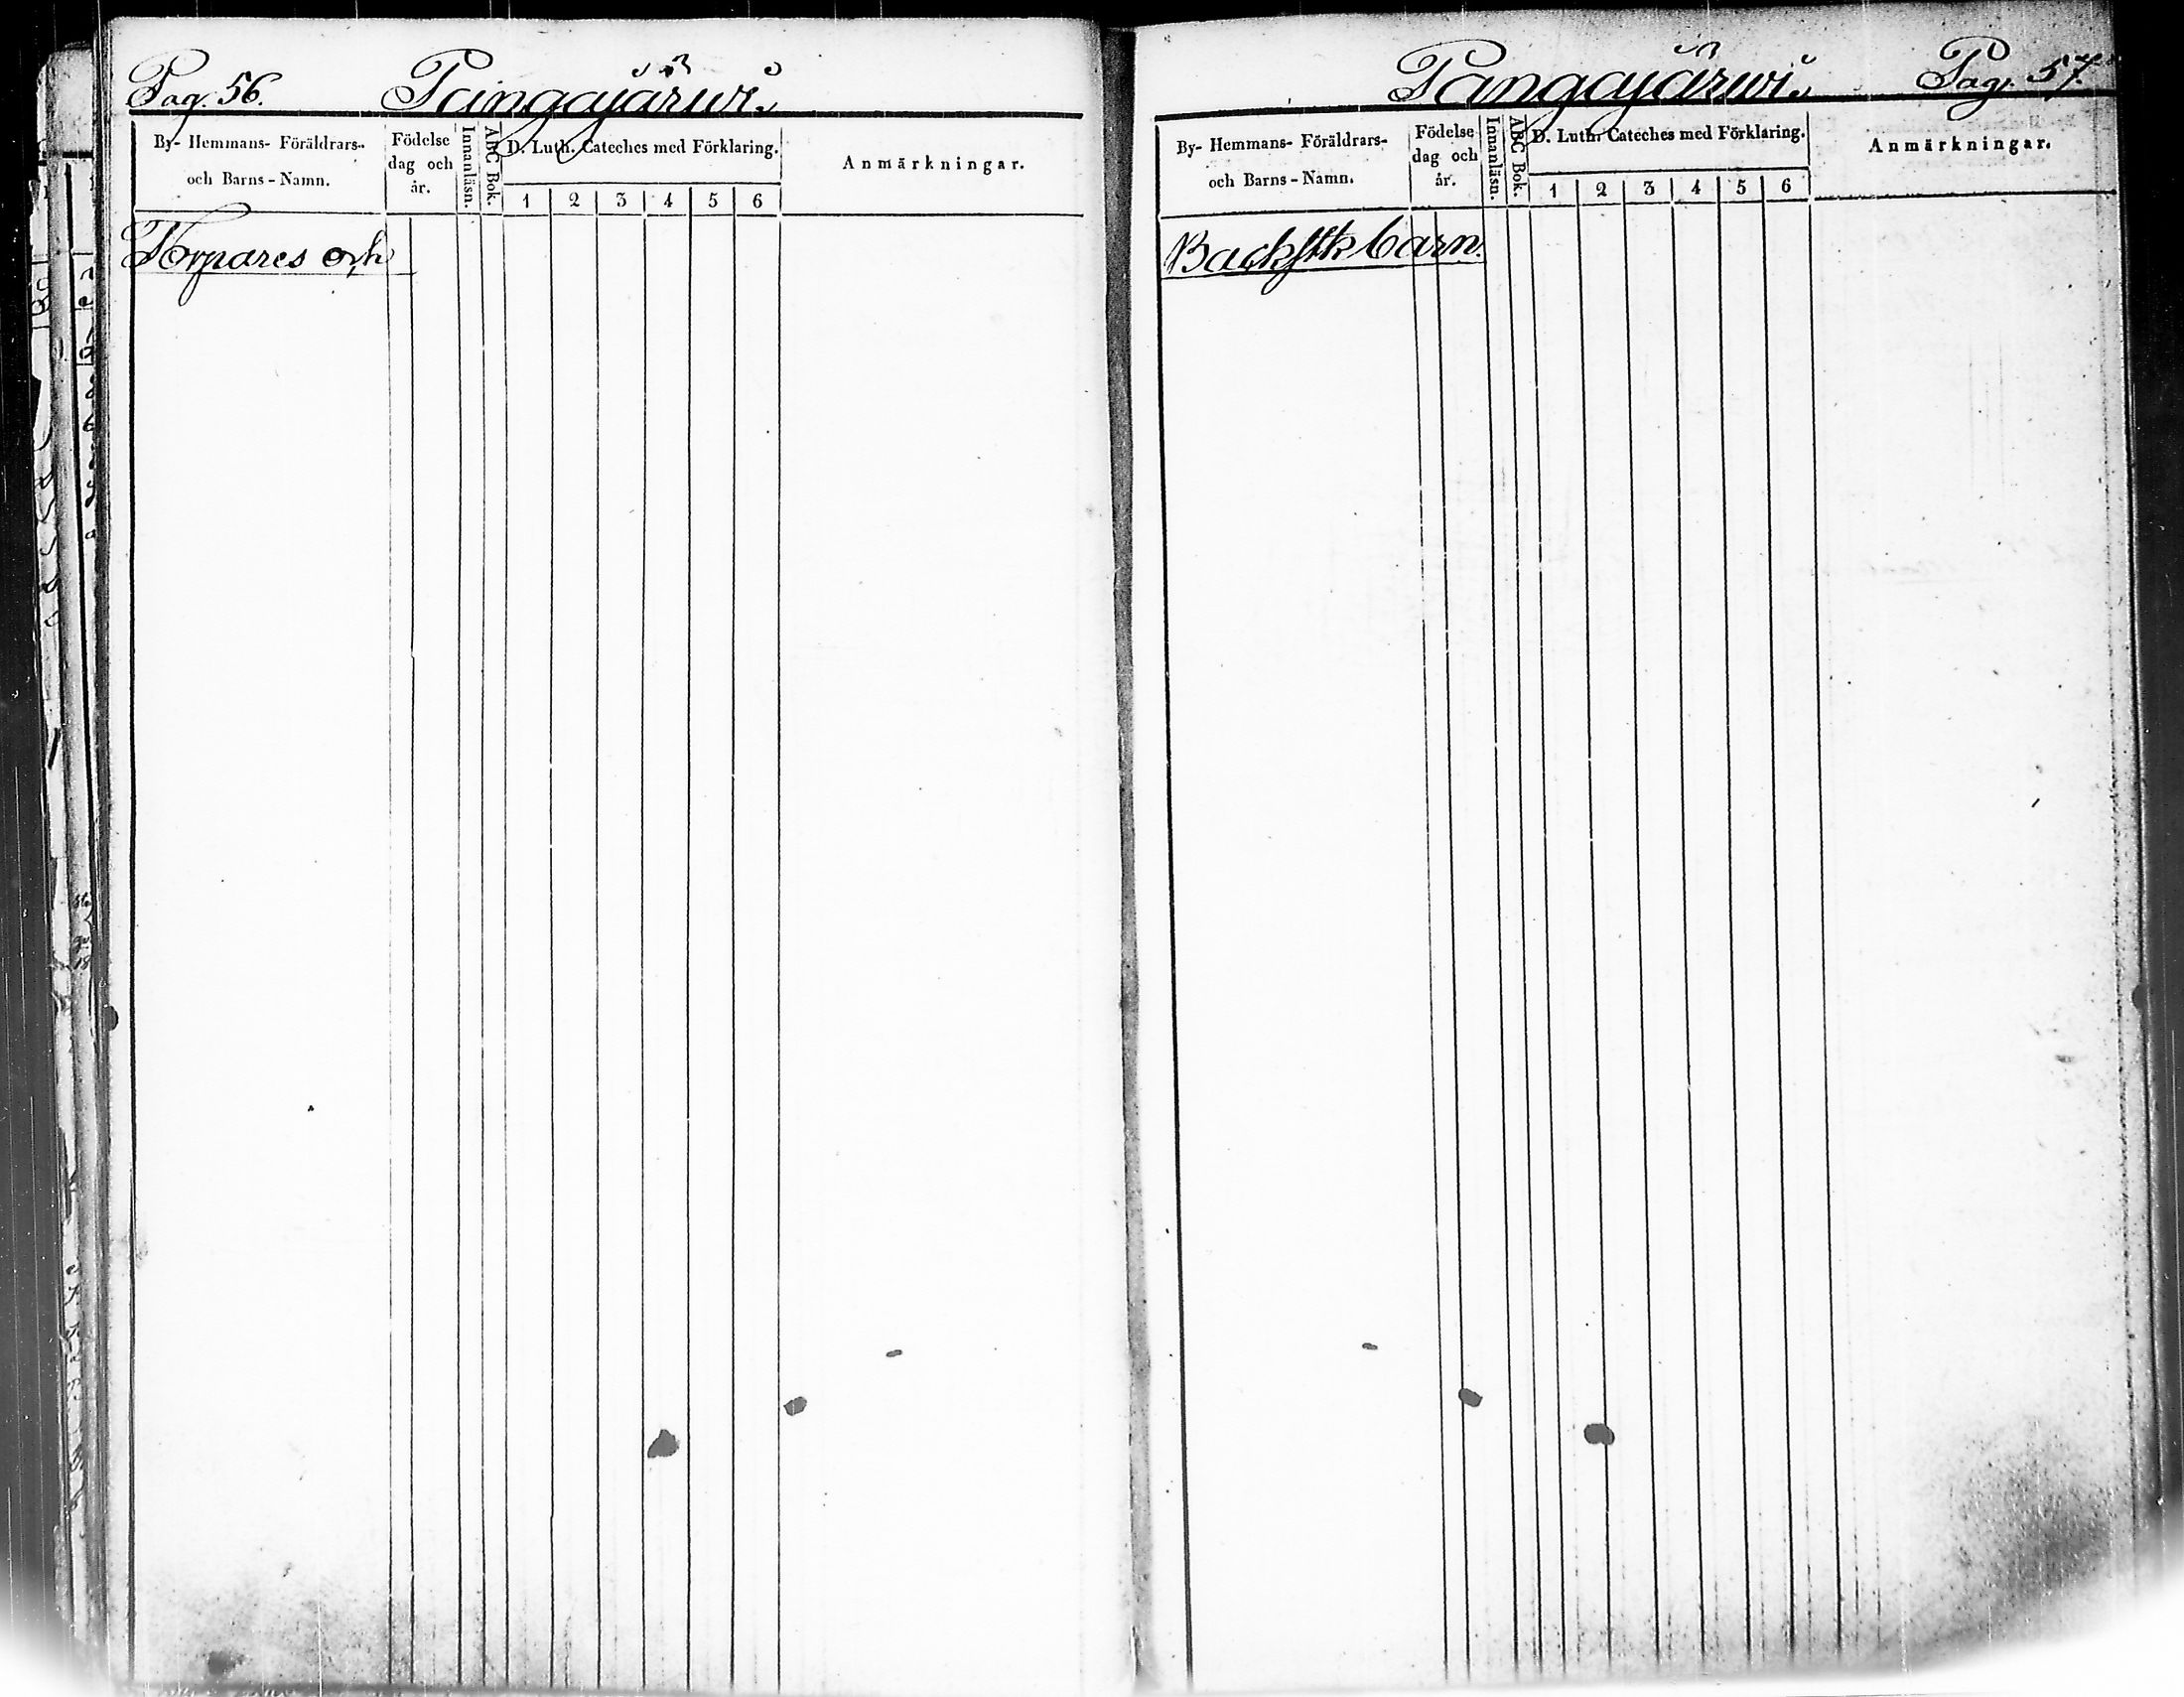 Pag. 56. Pangajärwi.
By- Hemmans- Föräldrars- och Barns-Namn.
Födelse dag och år.
Innanläsn.
ABC Bok.
D. Luth. Cateches med Förklaring.
1 2 3 4 5 6
Anmärkningar.
Torpares och
Pangajärwi. Pag. 57.
By- Hemmans- Föräldrars- och Barns-Namn.
Födelse dag och år.
Innanläsn.
ABC Bok.
D. Luth. Cateches med Förklaring.
1 2 3 4 5 6
Anmärkningar.
Backstk barn.